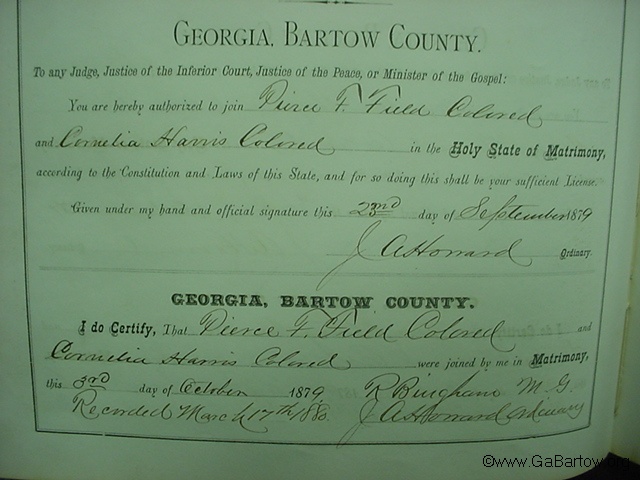 GEORGIA, BARTOW COUNTY.
To any Judge, Justice of the Inferior Court, Justice of the Peace, or Minister of the Gospel:
You are hereby authorized to join Pierce F. Field Colored
and Cornelia Harris Colored in the Holy State of Matrimony,
according to the Constitution and Laws of this State, and for so doing this shall be your sufficient License.
Given under my hand and official signature this 23rd day of September 1879
J A Howard Ordinary.
GEORGIA, BARTOW COUNTY.
I do Certify, That Pierce F. Field Colored and
Cornelia Harris Colored were joined by me in Matrimony,
this 3rd day of October 1879. R Bingham M. G.
Recorded March 17th 1880. J A Howard Ordinary
©www.GaBartow.org